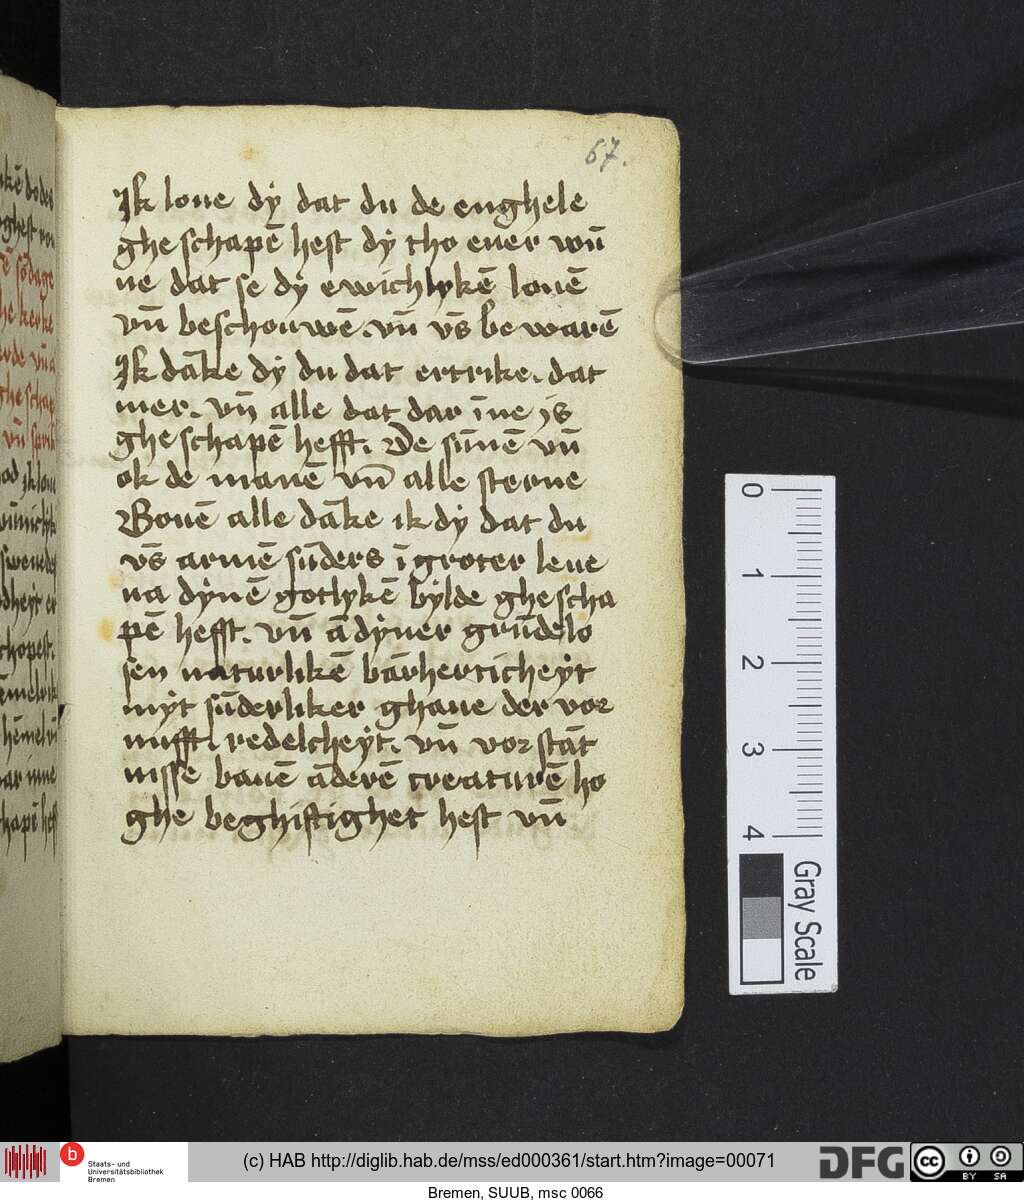 67.
Ik loue dÿ dat du de enghele
ghe schapē hest dÿ tho ener wū
ne dat se dÿ ewichlykē louē
vn̄ beschouwē. vn̄ vs̄ be warē
Ik dāke dÿ du dat ertrike. dat
mer. vn̄ alle dat dar īne ÿs
ghe schapē hefft. De sūnē vn̄
ok de manē vn̄ alle sterne
Bouē alle dāke ik dÿ dat du
vs̄ armē sūders ī groter leue
na dÿnē gotlykē bÿlde ghe scha
pē hefft. vn̄ ā dÿner grūdelo
sen naturlikē bārherticheÿt
mÿt sūderliker ghaue der vor
nufft. redelcheÿt. vn̄ vor stāt
nisse bauē āderē creaturē ho
ghe beghiftighet hest vn̄
0
1
2
3
4
Gray Scale
b
Staats- und
Universitätsbibliothek
Bremen
(c) HAB http://diglib.hab.de/mss/ed000361/start.htm?image=00071
DFG
cc BY SA
Bremen, SUUB, msc 0066